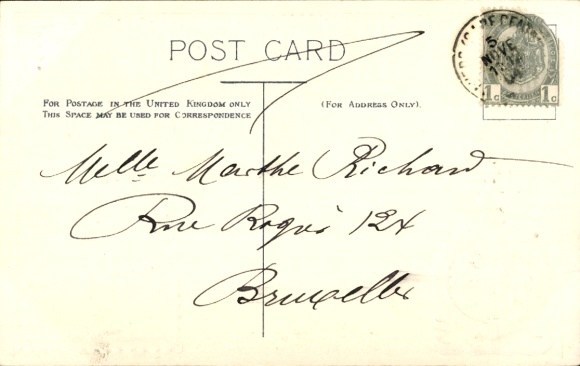 POST CARD
FOR POSTAGE IN THE UNITED KINGDOM ONLY
THIS SPACE MAY BE USED FOR CORRESPONDENCE
(FOR ADDRESS ONLY).
1c 1c
Melle Marthe Richard
Rue 124
Bruxelles